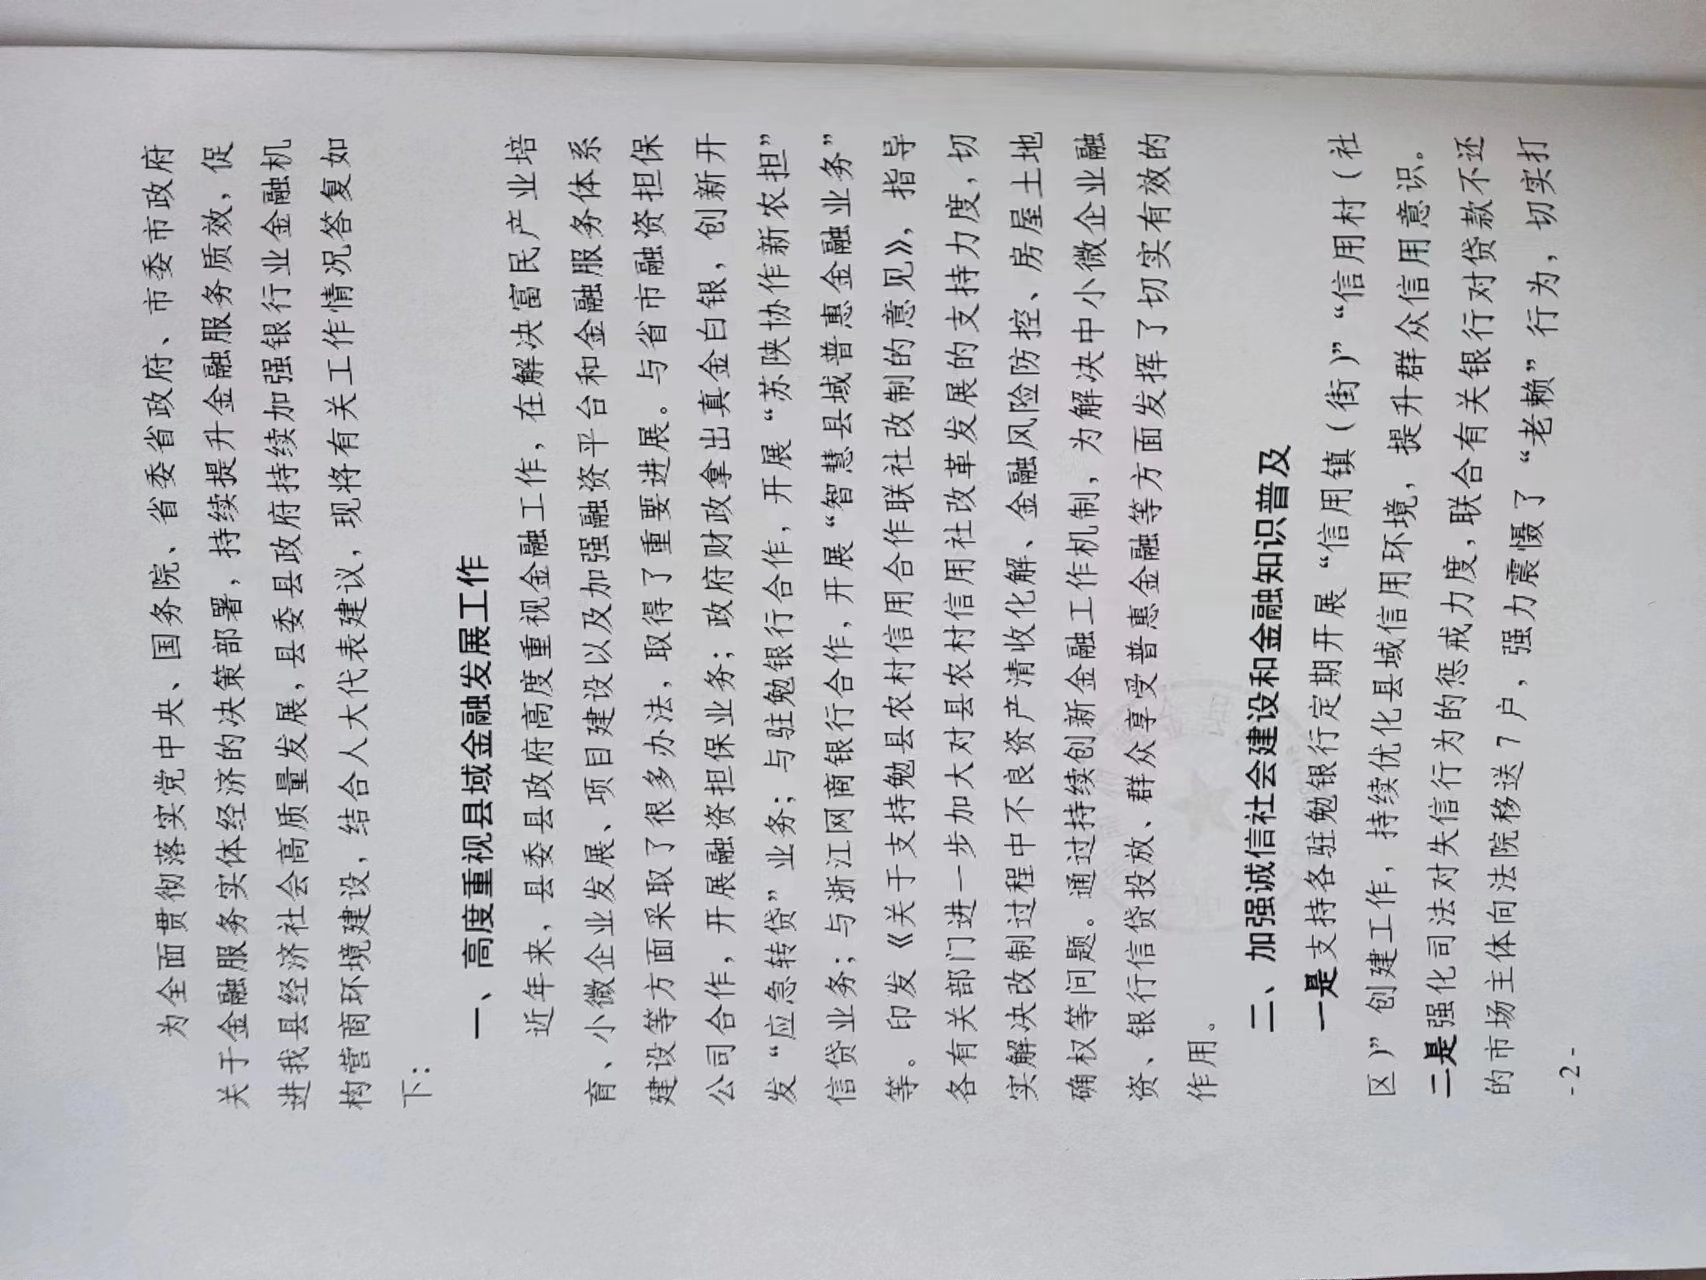 为全面贯彻落实党中央、国务院、省委省政府、市委市政府
关于金融服务实体经济的决策部署，持续提升金融服务质效，促
进我县经济社会高质量发展，县委县政府持续加强银行业金融机
构营商环境建设，结合人大代表建议，现将有关工作情况答复如
下：
一、高度重视县域金融发展工作
近年来，县委县政府高度重视金融工作，在解决富民产业培
育、小微企业发展、项目建设以及加强融资平台和金融服务体系
建设等方面采取了很多办法，取得了重要进展。与省市融资担保
公司合作，开展融资担保业务；政府财政拿出真金白银，创新开
发“应急转贷”业务；与驻勉银行合作，开展“苏陕协作新农担”
信贷业务；与浙江网商银行合作，开展“智慧县域普惠金融业务”
等。印发《关于支持勉县农村信用合作联社改制的意见》，指导
各有关部门进一步加大对县农村信用社改革发展的支持力度，切
实解决改制过程中不良资产清收化解、金融风险防控、房屋土地
确权等问题。通过持续创新金融工作机制，为解决中小微企业融
资、银行信贷投放、群众享受普惠金融等方面发挥了切实有效的
作用。
二、加强诚信社会建设和金融知识普及
一是支持各驻勉银行定期开展“信用镇（街）”“信用村（社
区）”创建工作，持续优化县域信用环境，提升群众信用意识。
二是强化司法对失信行为的惩戒力度，联合有关银行对贷款不还
的市场主体向法院移送7户，强力震慑了“老赖”行为，切实打
-2-